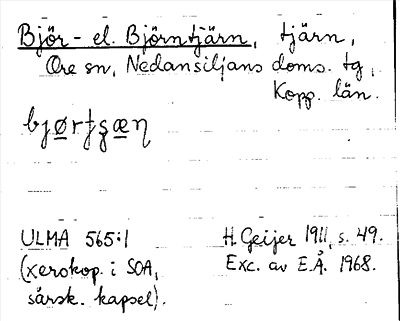 Björ- el. Björntjärn, tjärn,
Ore sn, Nedansiljans doms. tg,
Kopp. län.
bjørtʂæɳ
ULMA 565:1
(xerokop. i SOA,
särsk. kapsel).
H. Geijer 1911, s. 49.
Exc. av E.Å. 1968.